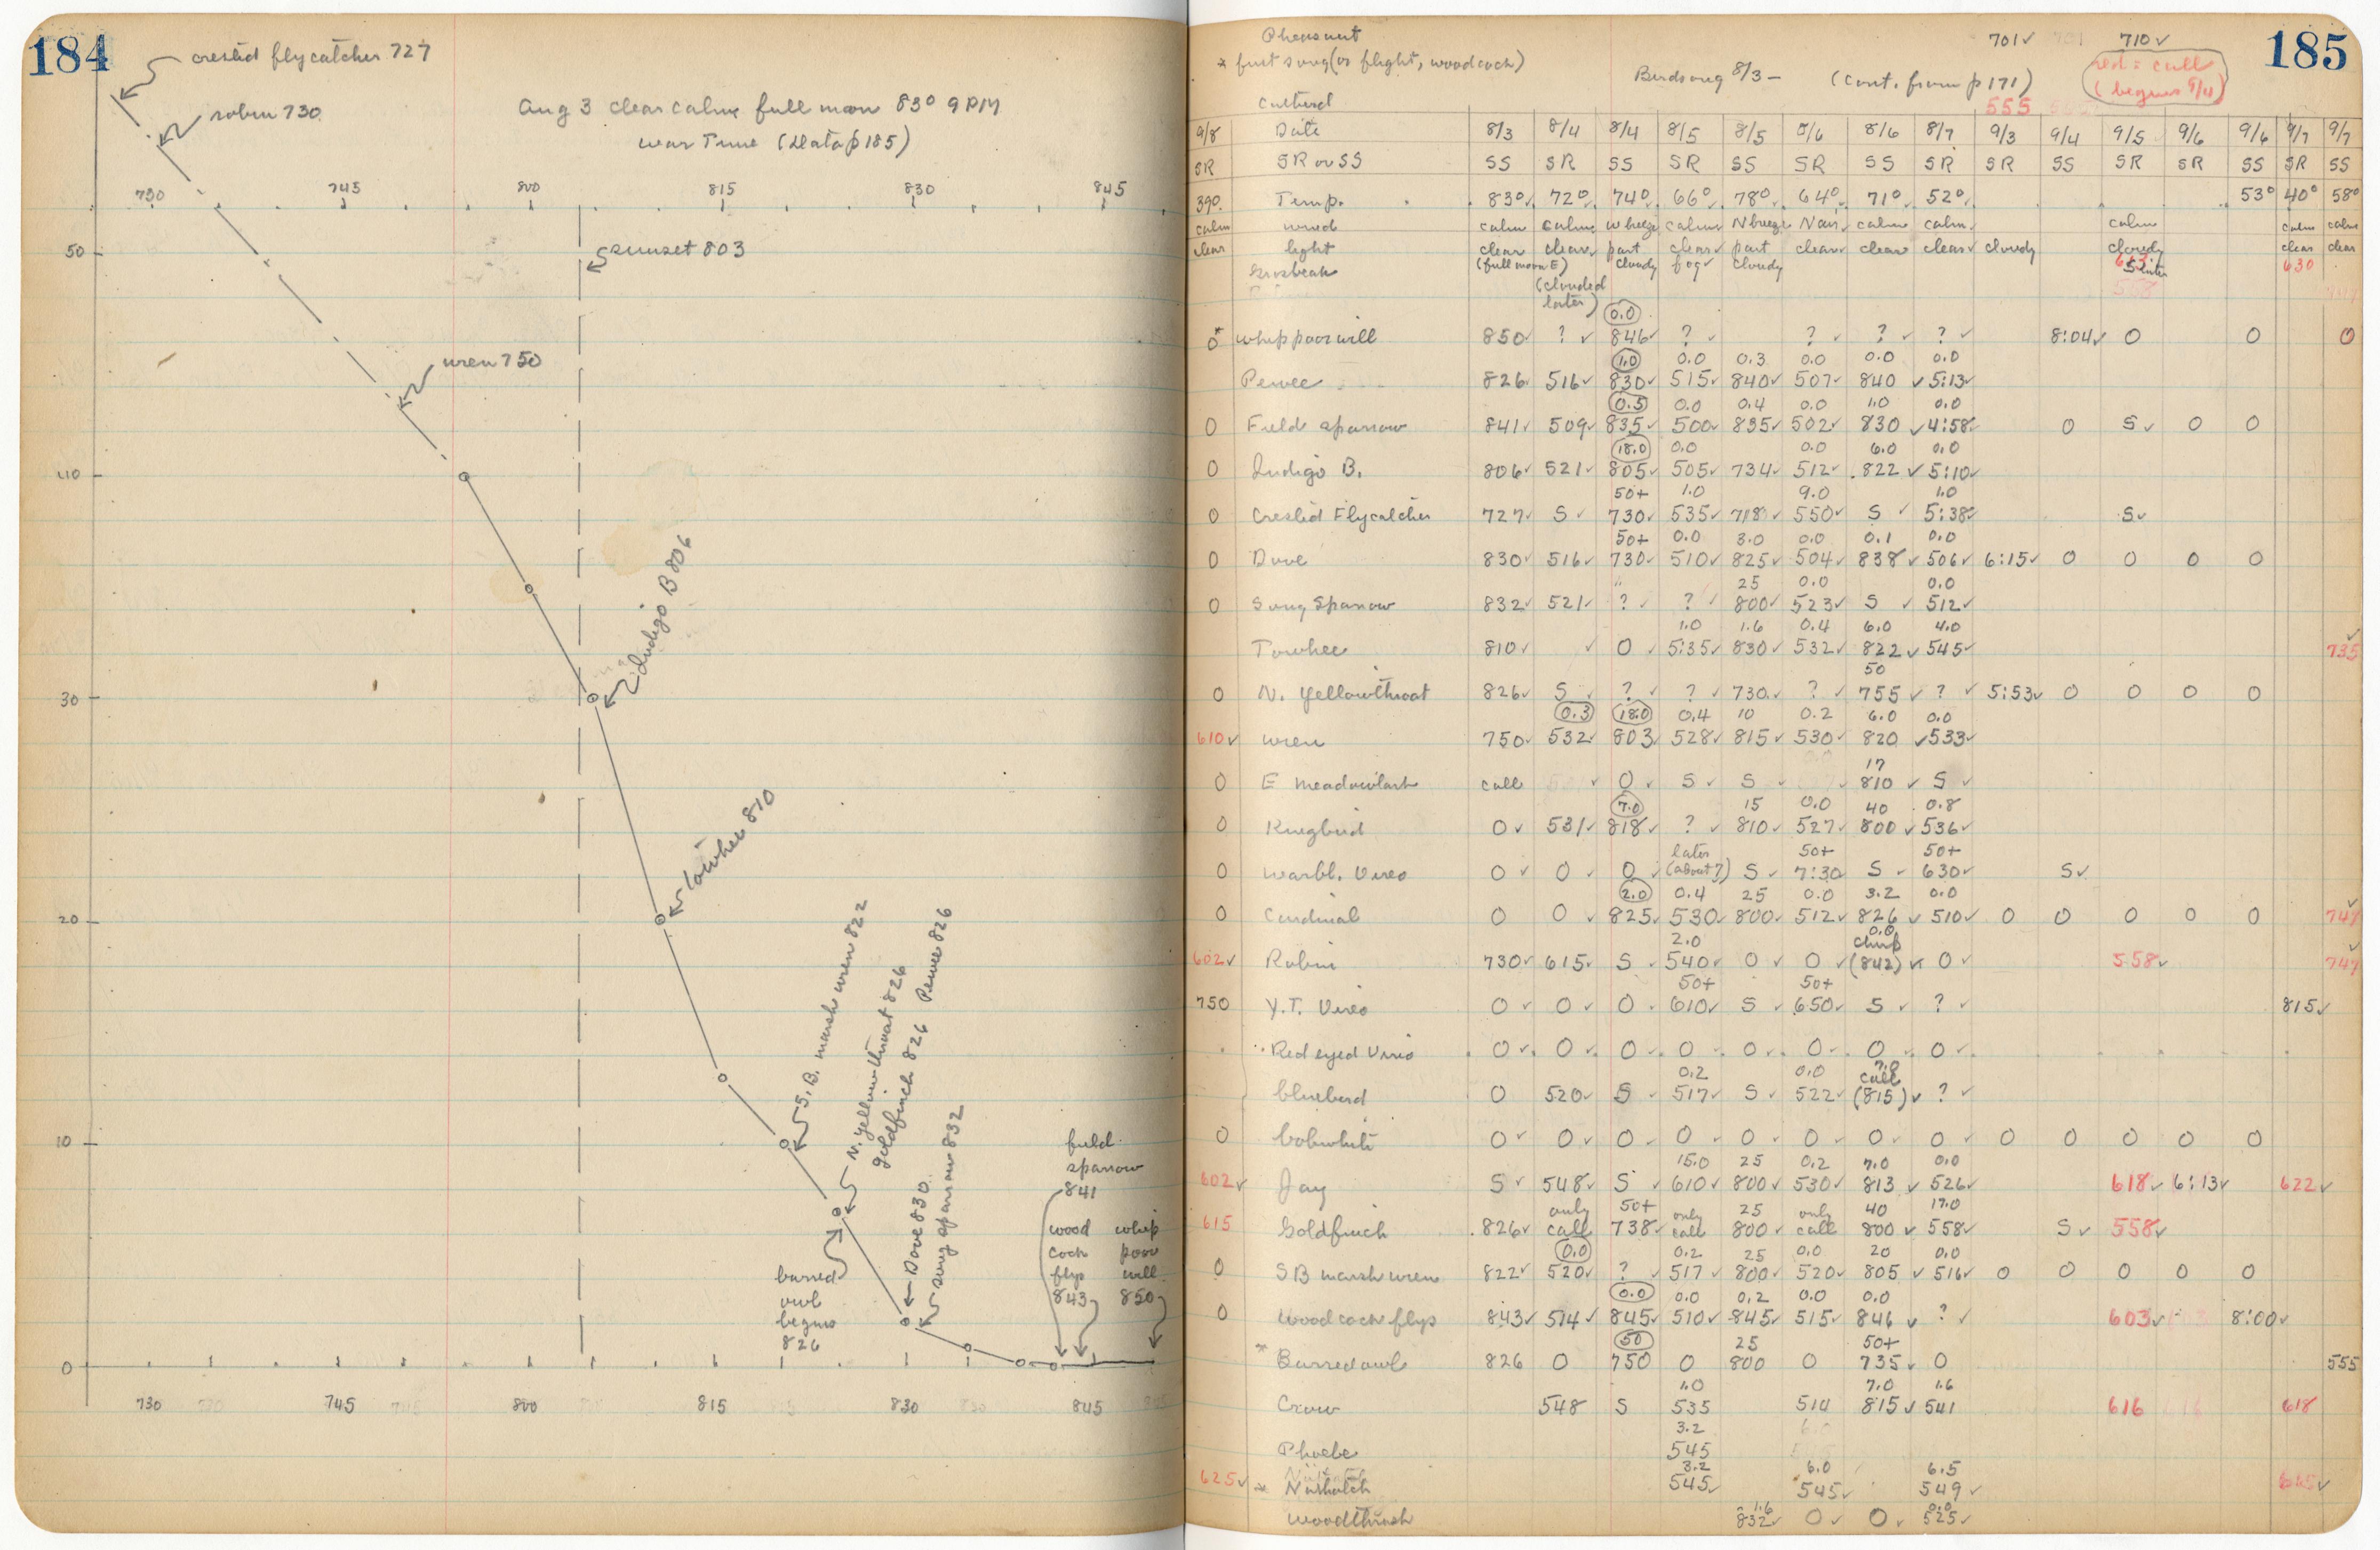 184
crested flycatcher 727
robin 730
Aug 3 clear calm full moon 83° 9 PM
War Time (Data p 185)
730 745 800 815 830 845
50
sunset 803
wren 750
40
Indigo B 806
30
towhee 810
20
S. B. marsh wren 822
N. yellowthroat 826
goldfinch 826 Pewee 826
10
Dove 830
song sparrow 832
field
sparrow
841
wood cock flys 843
whip poor will 850
barred
owl
begins
826
0
730 745 800 815 830 845
185
Pheasant 701✓ 710✓
* first song (or flight, woodcock)
Birdsong 8/3 — (cont. from p 171)
red = call
(begins 9/4)
555
9/8 Date 8/3 8/4 8/4 8/5 8/5 8/6 8/6 8/7 9/3 9/4 9/5 9/6 9/6 9/7 9/7
SR SR or SS SS SR SS SR SS SR SS SR SR SS SR SR SS SR SS
39° Temp. 83° 72° 74° 66° 78° 64° 71° 52° 53° 40° 58°
calm wind calm calm W breeze calm N breeze N air calm calm calm calm calm
clear light clear clear part cloudy clear fog part cloudy clear clear clear cloudy cloudy clear clear
(full moon E) (clouded later)
Grosbeak 630
0.0
0 * whippoorwill 850✓ ?✓ 846✓ ?✓ ?✓ ?✓ ?✓ 8:04✓ 0 0 0
1.0 0.0 0.3 0.0 0.0 0.0
Pewee 826✓ 516✓ 830✓ 515✓ 840✓ 507✓ 840✓ 5:13✓
0.5 0.0 0.4 0.0 1.0 0.0
0 Field sparrow 841✓ 509✓ 835✓ 500✓ 835✓ 502✓ 830✓ 4:58✓ 0 S✓ 0 0
18.0 0.0 0.0 6.0 0.0
0 Indigo B. 806✓ 521✓ 805✓ 505✓ 734✓ 512✓ 822✓ 5:10✓
50+ 1.0 9.0 1.0
0 Crested Flycatcher 727✓ S✓ 730✓ 535✓ 718✓ 550✓ S✓ 5:38✓ S✓
50+ 0.0 3.0 0.0 0.1 0.0
0 Dove 830✓ 516✓ 730✓ 510✓ 825✓ 504✓ 838✓ 506✓ 6:15✓ 0 0 0 0
25 0.0 0.0
0 Song Sparrow 832✓ 521✓ ?✓ ?✓ 800✓ 523✓ S✓ 512✓
1.0 1.6 0.4 6.0 4.0
Towhee 810✓ ✓ 0✓ 5:35✓ 830✓ 532✓ 822✓ 545✓ 735✓
50
0 N. Yellowthroat 826✓ S✓ ?✓ ?✓ 730✓ ?✓ 755✓ ?✓ 5:53✓ 0 0 0 0
0.3 18.0 0.4 10 0.2 6.0 0.0
610✓ wren 750✓ 532✓ 803✓ 528✓ 815✓ 530✓ 820✓ 533✓
17
0 E meadowlark call ✓ 0✓ S✓ S✓ 810✓ S✓
7.0 15 0.0 40 0.8
0 Kingbird 0✓ 531✓ 818✓ ?✓ 810✓ 527✓ 800✓ 536✓
later 50+ 50+
0 warbl. Vireo 0✓ 0✓ 0✓ (about 7) S✓ 7:30 S✓ 630✓ S✓
2.0 0.4 25 0.0 3.2 0.0
0 Cardinal 0 0✓ 825✓ 530✓ 800✓ 512✓ 826✓ 510✓ 0 0 0 0 0 747✓
2.0 0.0 chirp
602✓ Robin 730✓ 615✓ S✓ 540✓ 0✓ 0✓ (842)✓ 0✓ 558✓ 747✓
50+ 50+
750 Y.T. Vireo 0✓ 0✓ 0✓ 610✓ S✓ 650✓ S✓ ?✓ 815✓
Red eyed Vireo 0✓ 0✓ 0✓ 0✓ 0✓ 0✓ 0✓ 0✓
0.2 0.0 7.0 call
bluebird 0 520✓ S✓ 517✓ S✓ 522✓ (815)✓ ?✓
0 bobwhite 0✓ 0✓ 0✓ 0✓ 0✓ 0✓ 0✓ 0✓ 0 0 0 0 0
15.0 25 0.2 7.0 0.0
602✓ Jay S✓ 548✓ S✓ 610✓ 800✓ 530✓ 813✓ 526✓ 618✓ 6:13✓ 622✓
only 50+ only 25 only 40 17.0
615 Goldfinch 826✓ call 738✓ call 800✓ call 800✓ 558✓ S✓ 558✓
0.0 0.2 25 0.0 20 0.0
0 SB marsh wren 822✓ 520✓ ?✓ 517✓ 800✓ 520✓ 805✓ 516✓ 0 0 0 0 0
0.0 0.0 0.2 0.0 0.0
0 Woodcock flys 843✓ 514✓ 845✓ 510✓ 845✓ 515✓ 846✓ ?✓ 603✓ 8:00✓
50 25 50+
* Barred owl 826 0 750 0 800 0 735✓ 0 555
1.0 7.0 1.6
Crow 548 S 535 514 815✓ 541 616 618
3.2
Phoebe 545
3.2 6.0 6.5
625✓ * Nuthatch 545✓ 545✓ 549✓
1.6 0.0
woodthrush 832✓ 0✓ 0✓ 525✓